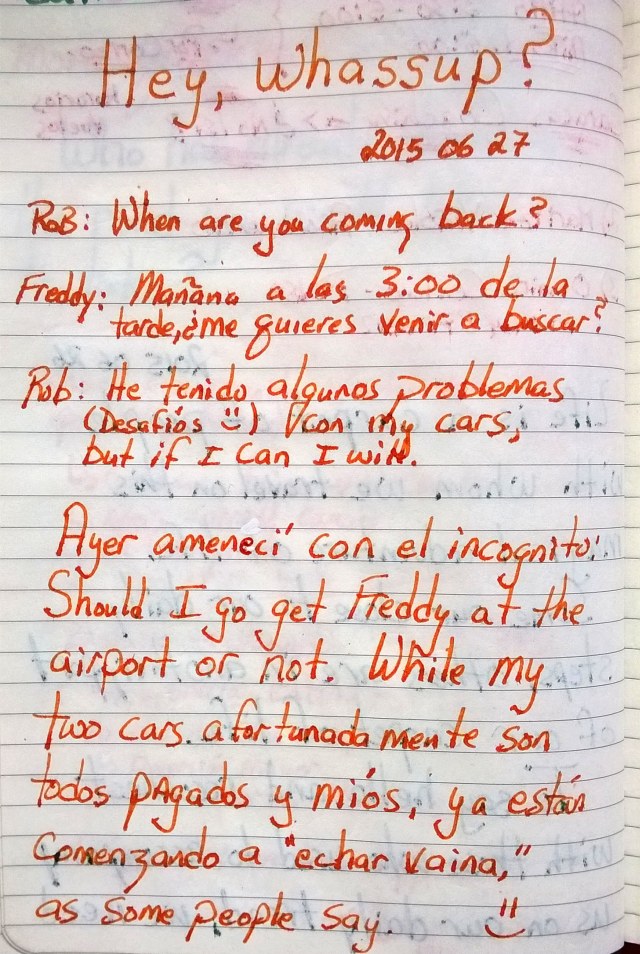 Hey, whassup?
2015 06 27
Rob: When are you coming back?
Freddy: Mañana a las 3:00 de la
tarde, ¿me quieres venir a buscar?
Rob: He tenido algunos problemas
(Desafiós ☺) con my cars,
but if I can I will.
Ayer amenecí con el incognito:
Should I go get Freddy at the
airport or not. While my
two cars afortunadamente son
todos pagados y miós, ya están
Comenzando a "echar vaina,"
as some people say. ☺